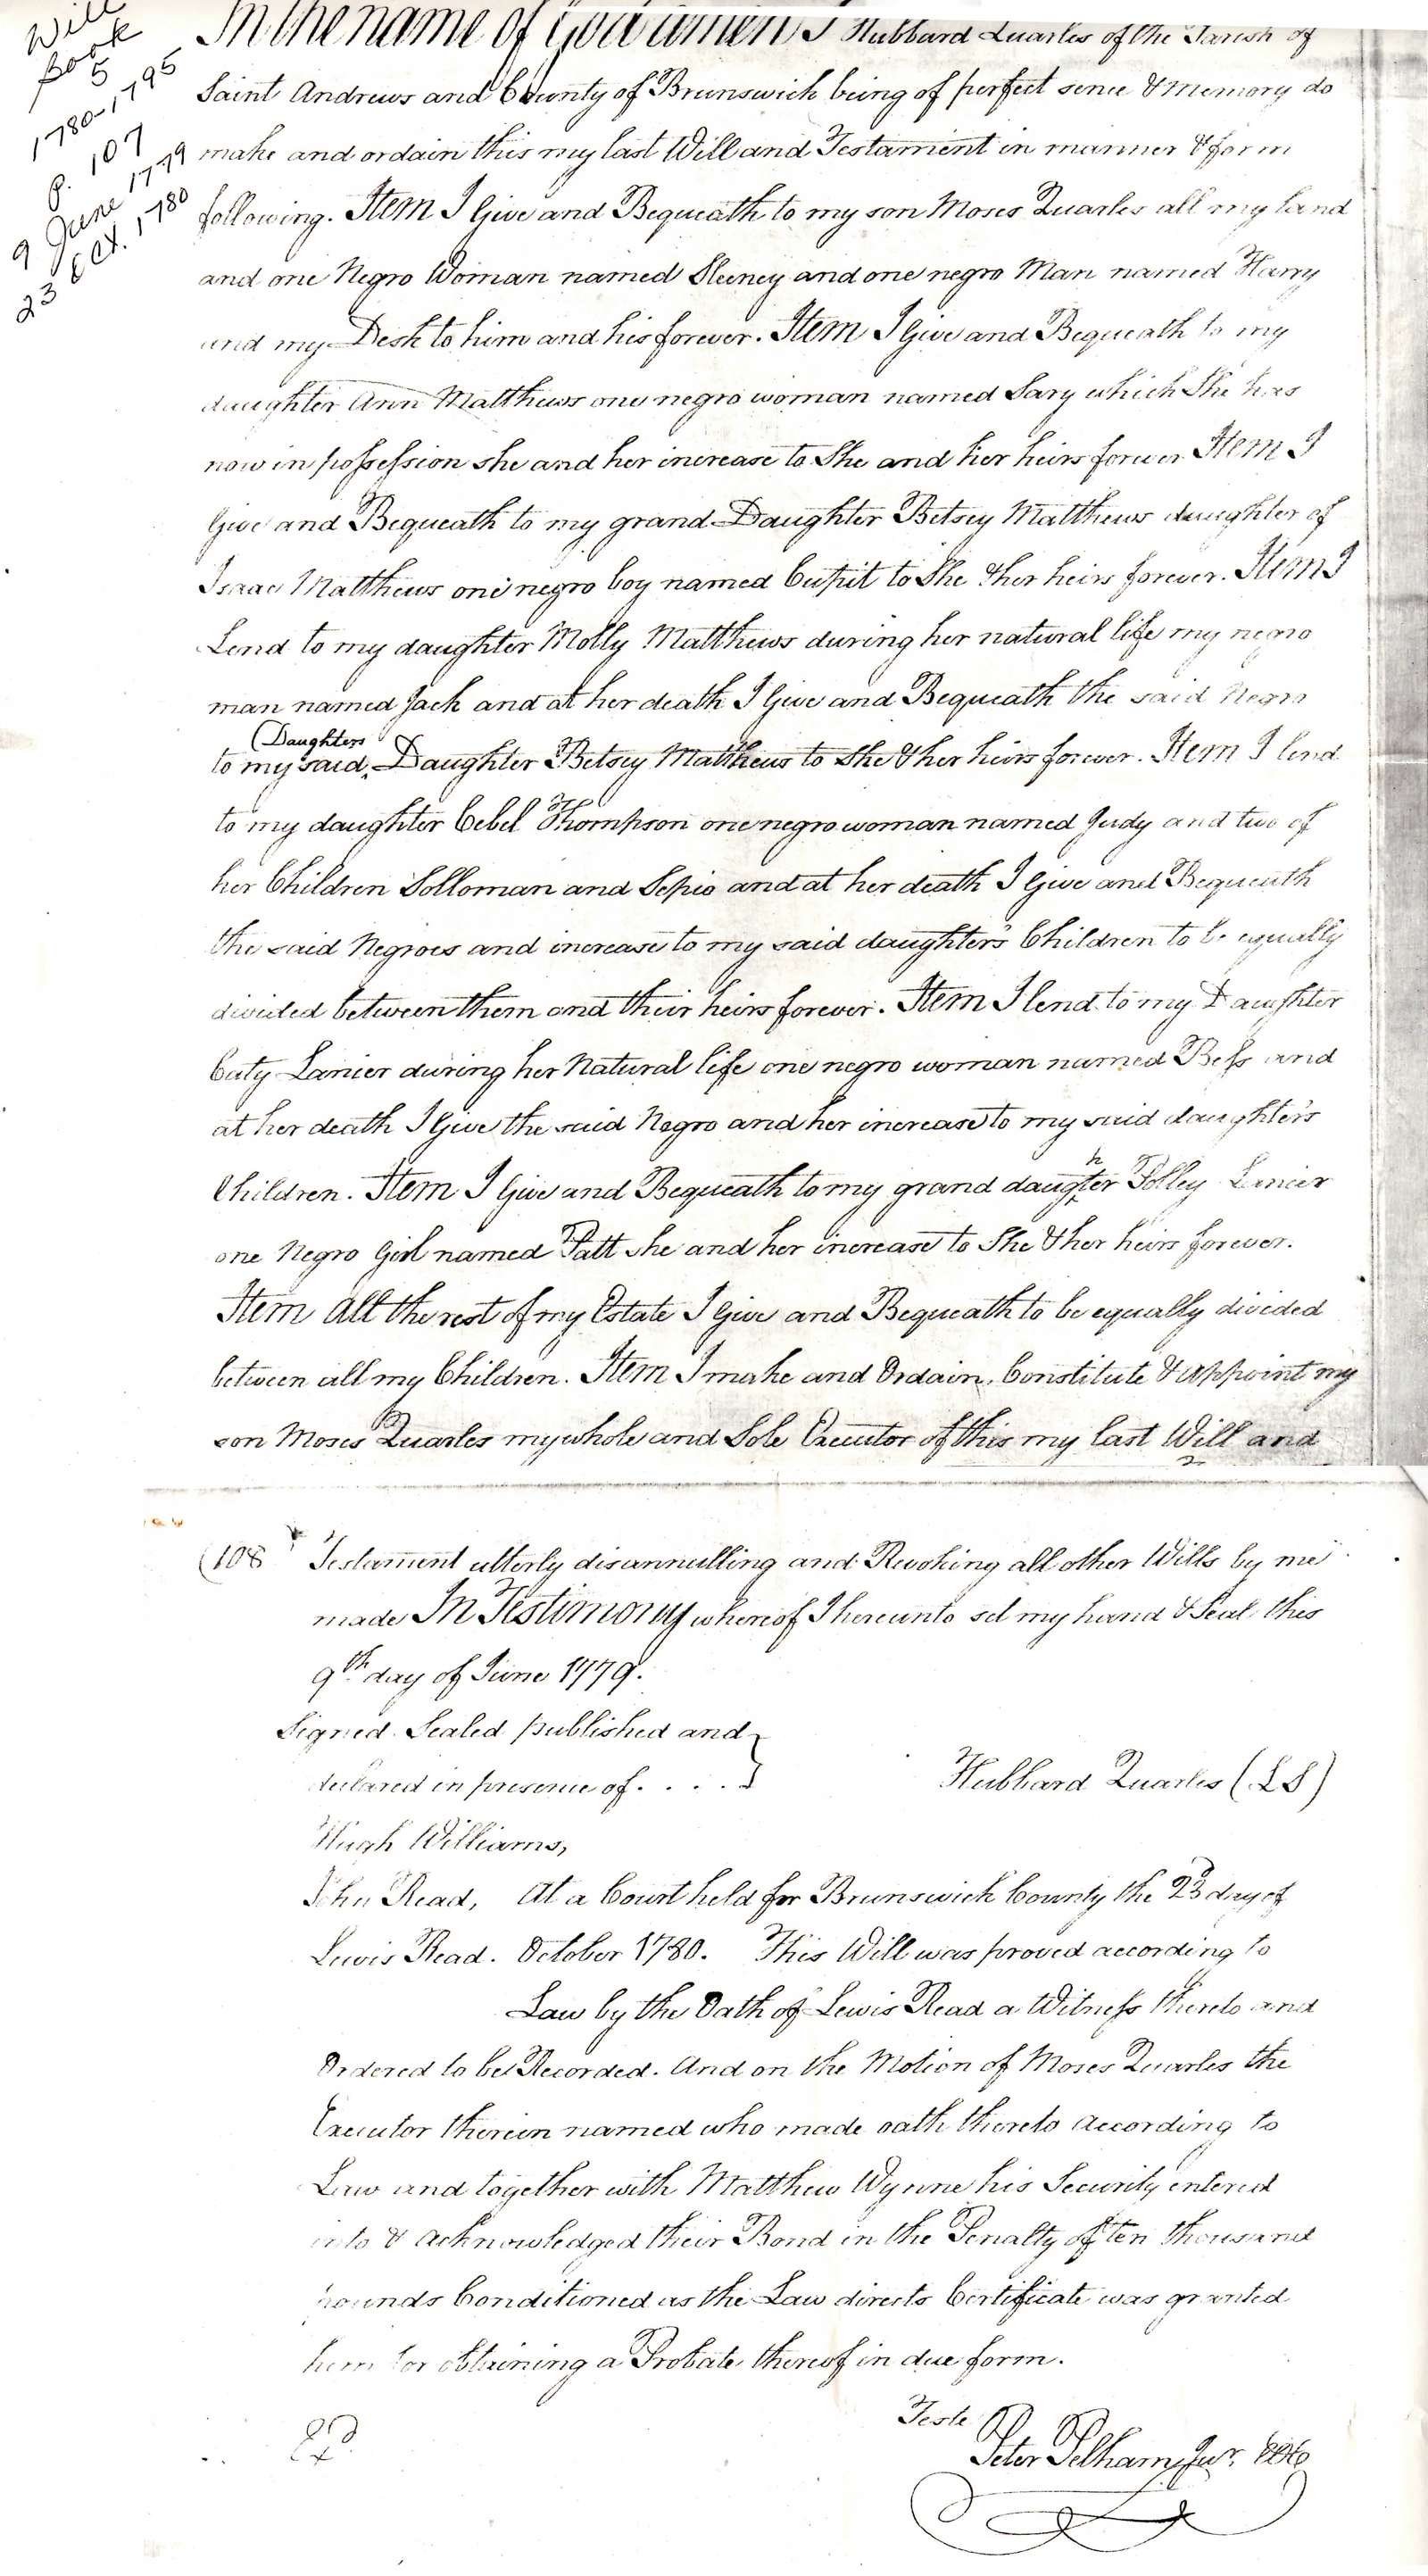 Will
Book
5
1780-1795
p. 107
9 June 1779
23 Oct. 1780
In the name of God amen I Hubbard Quarles of the Parish of
Saint Andrews and County of Brunswick being of perfect sence & Memory do
make and ordain this my last Will and Testament in manner & form
following. Item I Give and Bequeath to my son Moses Quarles all my land
and one Negro Woman named and one negro Man named Harry
and my Desk to him and his forever. Item I Give and Bequeath to my
daughter Ann Matthews one negro woman named Sary which She has
now in possession she and her increase to She and her heirs forever Item I
Give and Bequeath to my grand Daughter Betsey Matthews daughter of
Isaac Matthews one negro boy named Cupit to She & her heirs forever. Item I
Lend to my daughter Molly Matthews during her natural life my negro
man named Jack and at her death I Give and Bequeath the said Negro
(Daughters
to my said Daughter Betsey Matthews to She & her heirs forever. Item I lend
to my daughter Cebel Thompson one negro woman named Judy and two of
her Children Solloman and Sepio and at her death I Give and Bequeath
the said Negroes and increase to my said daughters Children to be equally
divided between them and their heirs forever. Item I lend to my Daughter
Caty Lanier during her Natural life one negro woman named Bess and
at her death I Give the said Negro and her increase to my said daughters
Children. Item I Give and Bequeath to my grand daughter Polley Lanier
one Negro Girl named Patt she and her increase to She & her heirs forever.
Item All the rest of my Estate I Give and Bequeath to be equally divided
between all my Children. Item I make and Ordain, Constitute & appoint my
son Moses Quarles my whole and Sole Executor of this my last Will and
(108 Testament utterly disannulling and Revoking all other Wills by me
made In Testimony whereof I hereunto set my hand & Seal this
9th day of June 1779.
Signed Sealed published and }
declared in presence of . . . . } Hubbard Quarles (LS)
Hugh Williams,
John Read, At a Court held for Brunswick County the 23d day of
Lewis Read. October 1780. This Will was proved according to
Law by the Oath of Lewis Read a Witness thereto and
Ordered to be Recorded. And on the Motion of Moses Quarles the
Executor therein named who made oath thereto according to
Law and together with Matthew Wynne his Security entered
into & acknowledged their Bond in the Penalty of ten thousand
pounds Conditioned as the Law directs Certificate was granted
him for obtaining a Probate thereof in due form.
Teste
Peter Pelham, Junr.